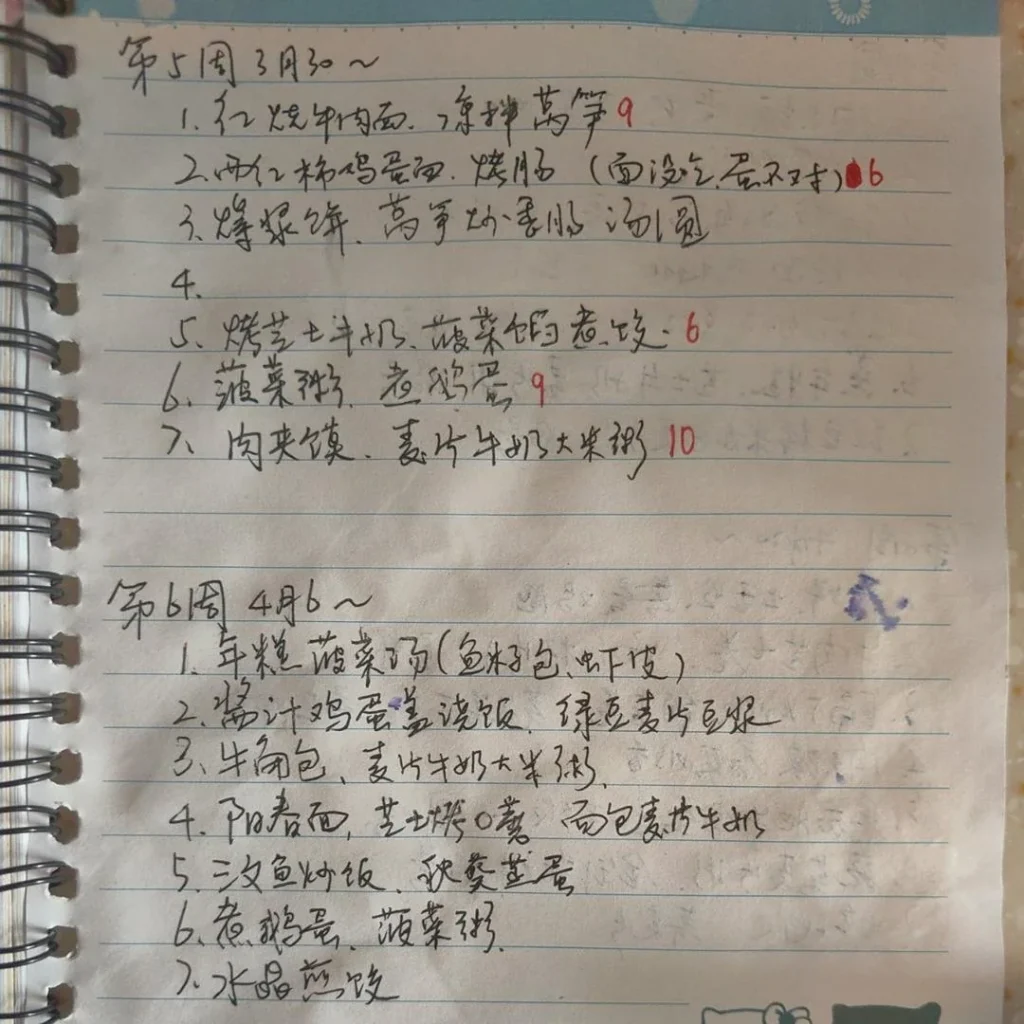 第5周 3月30~
1. 红烧牛肉面、凉拌莴笋 9
2. 西红柿鸡蛋面、烤肠(面没?、蛋不对) 6
3、爆浆饼、莴笋炒香肠 汤圆
4.
5、烤芝士牛奶、菠菜馅煮饺. 6
6、菠菜粥、煮鹅蛋 9
7、肉夹馍、麦片牛奶大米粥 10
第6周 4月6~
1、年糕菠菜汤(鱼籽包、虾皮)
2、酱汁鸡蛋盖浇饭、绿豆麦片豆浆
3、牛角包、麦片牛奶大米粥
4、阳春面, 芝士烤口蘑 面包麦片牛奶
5、三文鱼炒饭、秋葵蒸蛋
6、煮鹅蛋、菠菜粥
7、水晶煎饺